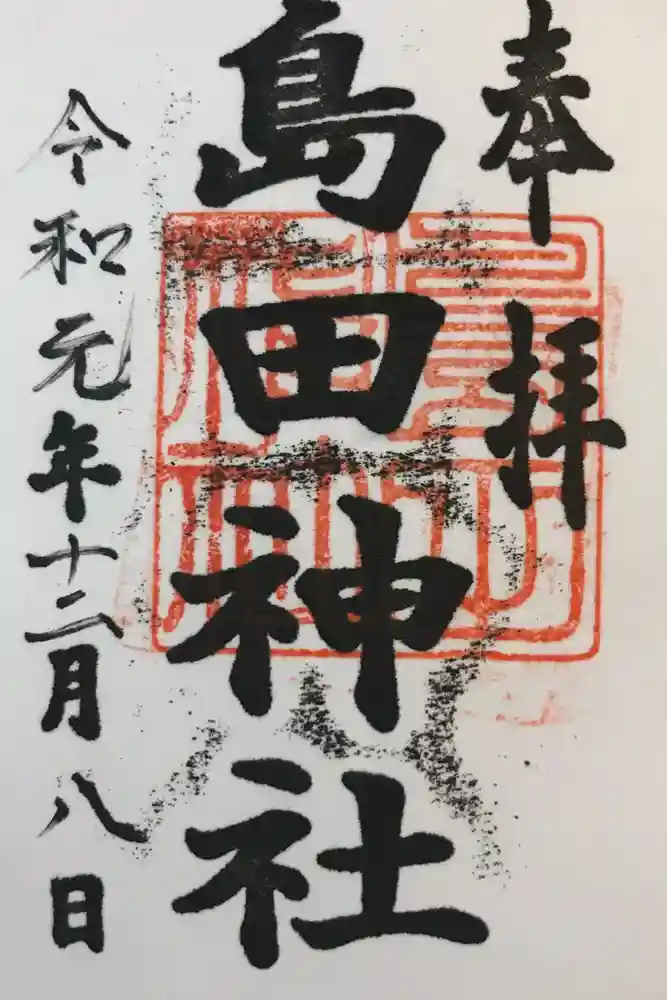 奉拝
島田神社
令和元年十二月八日